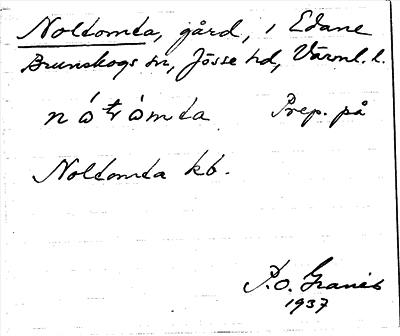 Noltomta, gård, i Edane
Brunskogs sn, Jösse hd, Värml. l.
Prep. på
Noltomta kb.
P.O. Granér
1937